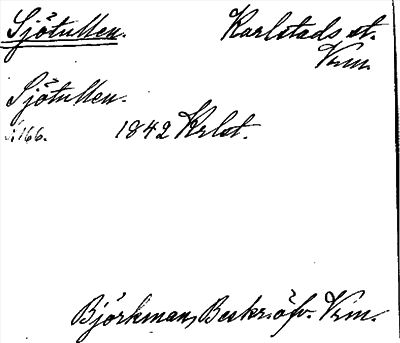 Sjötullen. Karlstads st.
Vrm.
Sjötullen.
s. 166. 1842 Krlst.
Björkman, Beskr. öfv. Vrm.